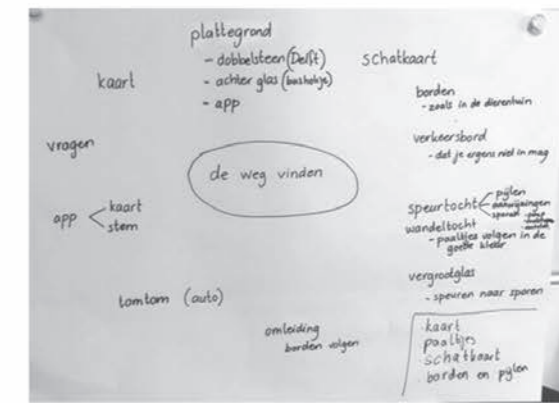 plattegrond
- dobbelsteen (Delft)
- achter glas (bushokje)
- app
schatkaart
kaart
borden
- zoals in de dierentuin
verkeersbord
- dat je ergens niet in mag
vragen
de weg vinden
app < kaart
stem
speurtocht
pijlen
aanwijzingen
sporen
wandeltocht
- paaltjes volgen in de
goede kleur
vergrootglas
- speuren naar sporen
tomtom (auto)
omleiding
borden volgen
kaart
paaltjes
schatkaart
borden en pijlen